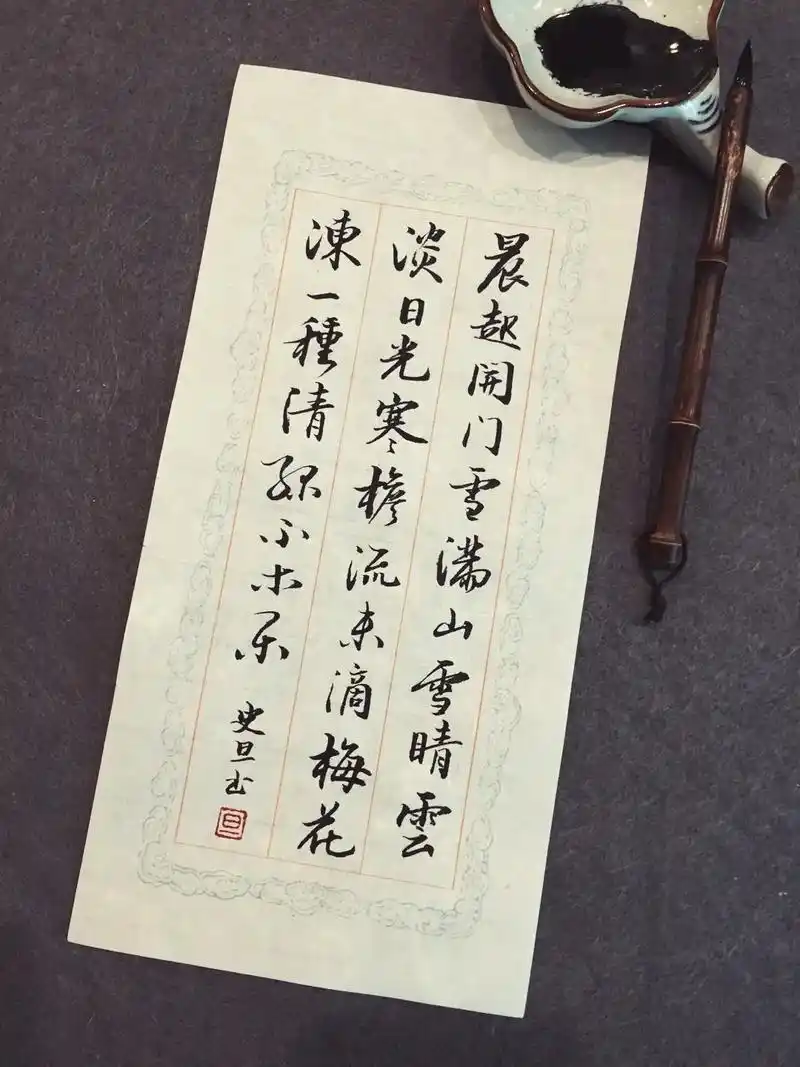 晨起開门雪滿山雪晴雲
淡日光寒檐流未滴梅花
凍一種清孤不等闲
史旦书
旦